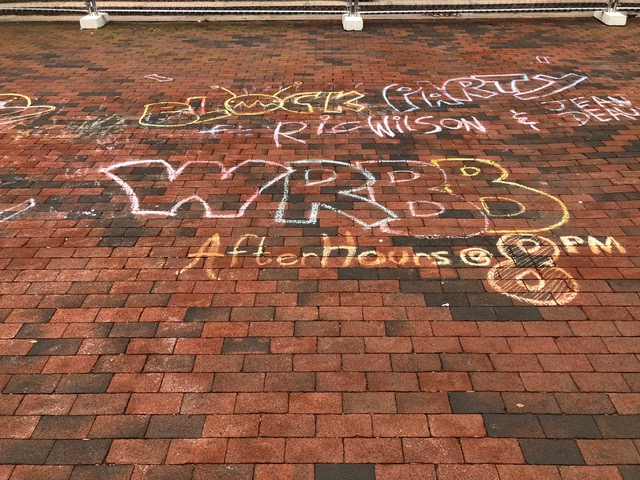 BLOCK PARTY
RIC WILSON & JEAN DEAUX
WRBB
AfterHours @ 8 PM